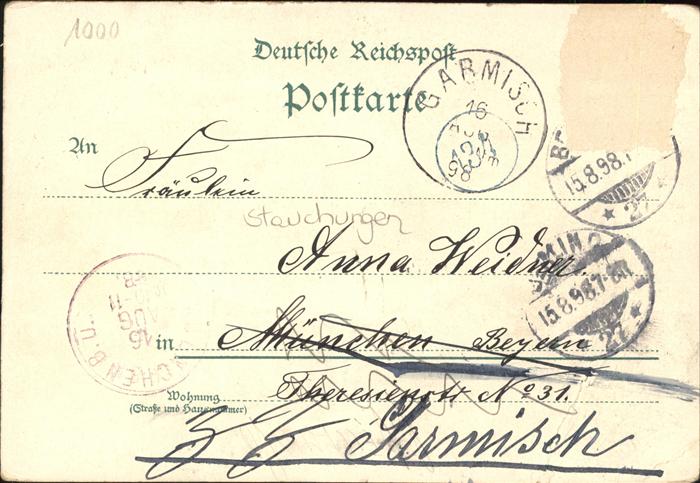 1000
Deutsche Reichspost
Postkarte
GARMISCH
16
98
15.8.98.7
27
An
Fräulein
Stauchungen
Anna Weidner.
15.8.98.7-8N
27
MÜNCHEN B.U.
16
AUG
in München Beyern
Wohnung
(Straße und Hausnummer)
Theresienstr No 31.
Garmisch